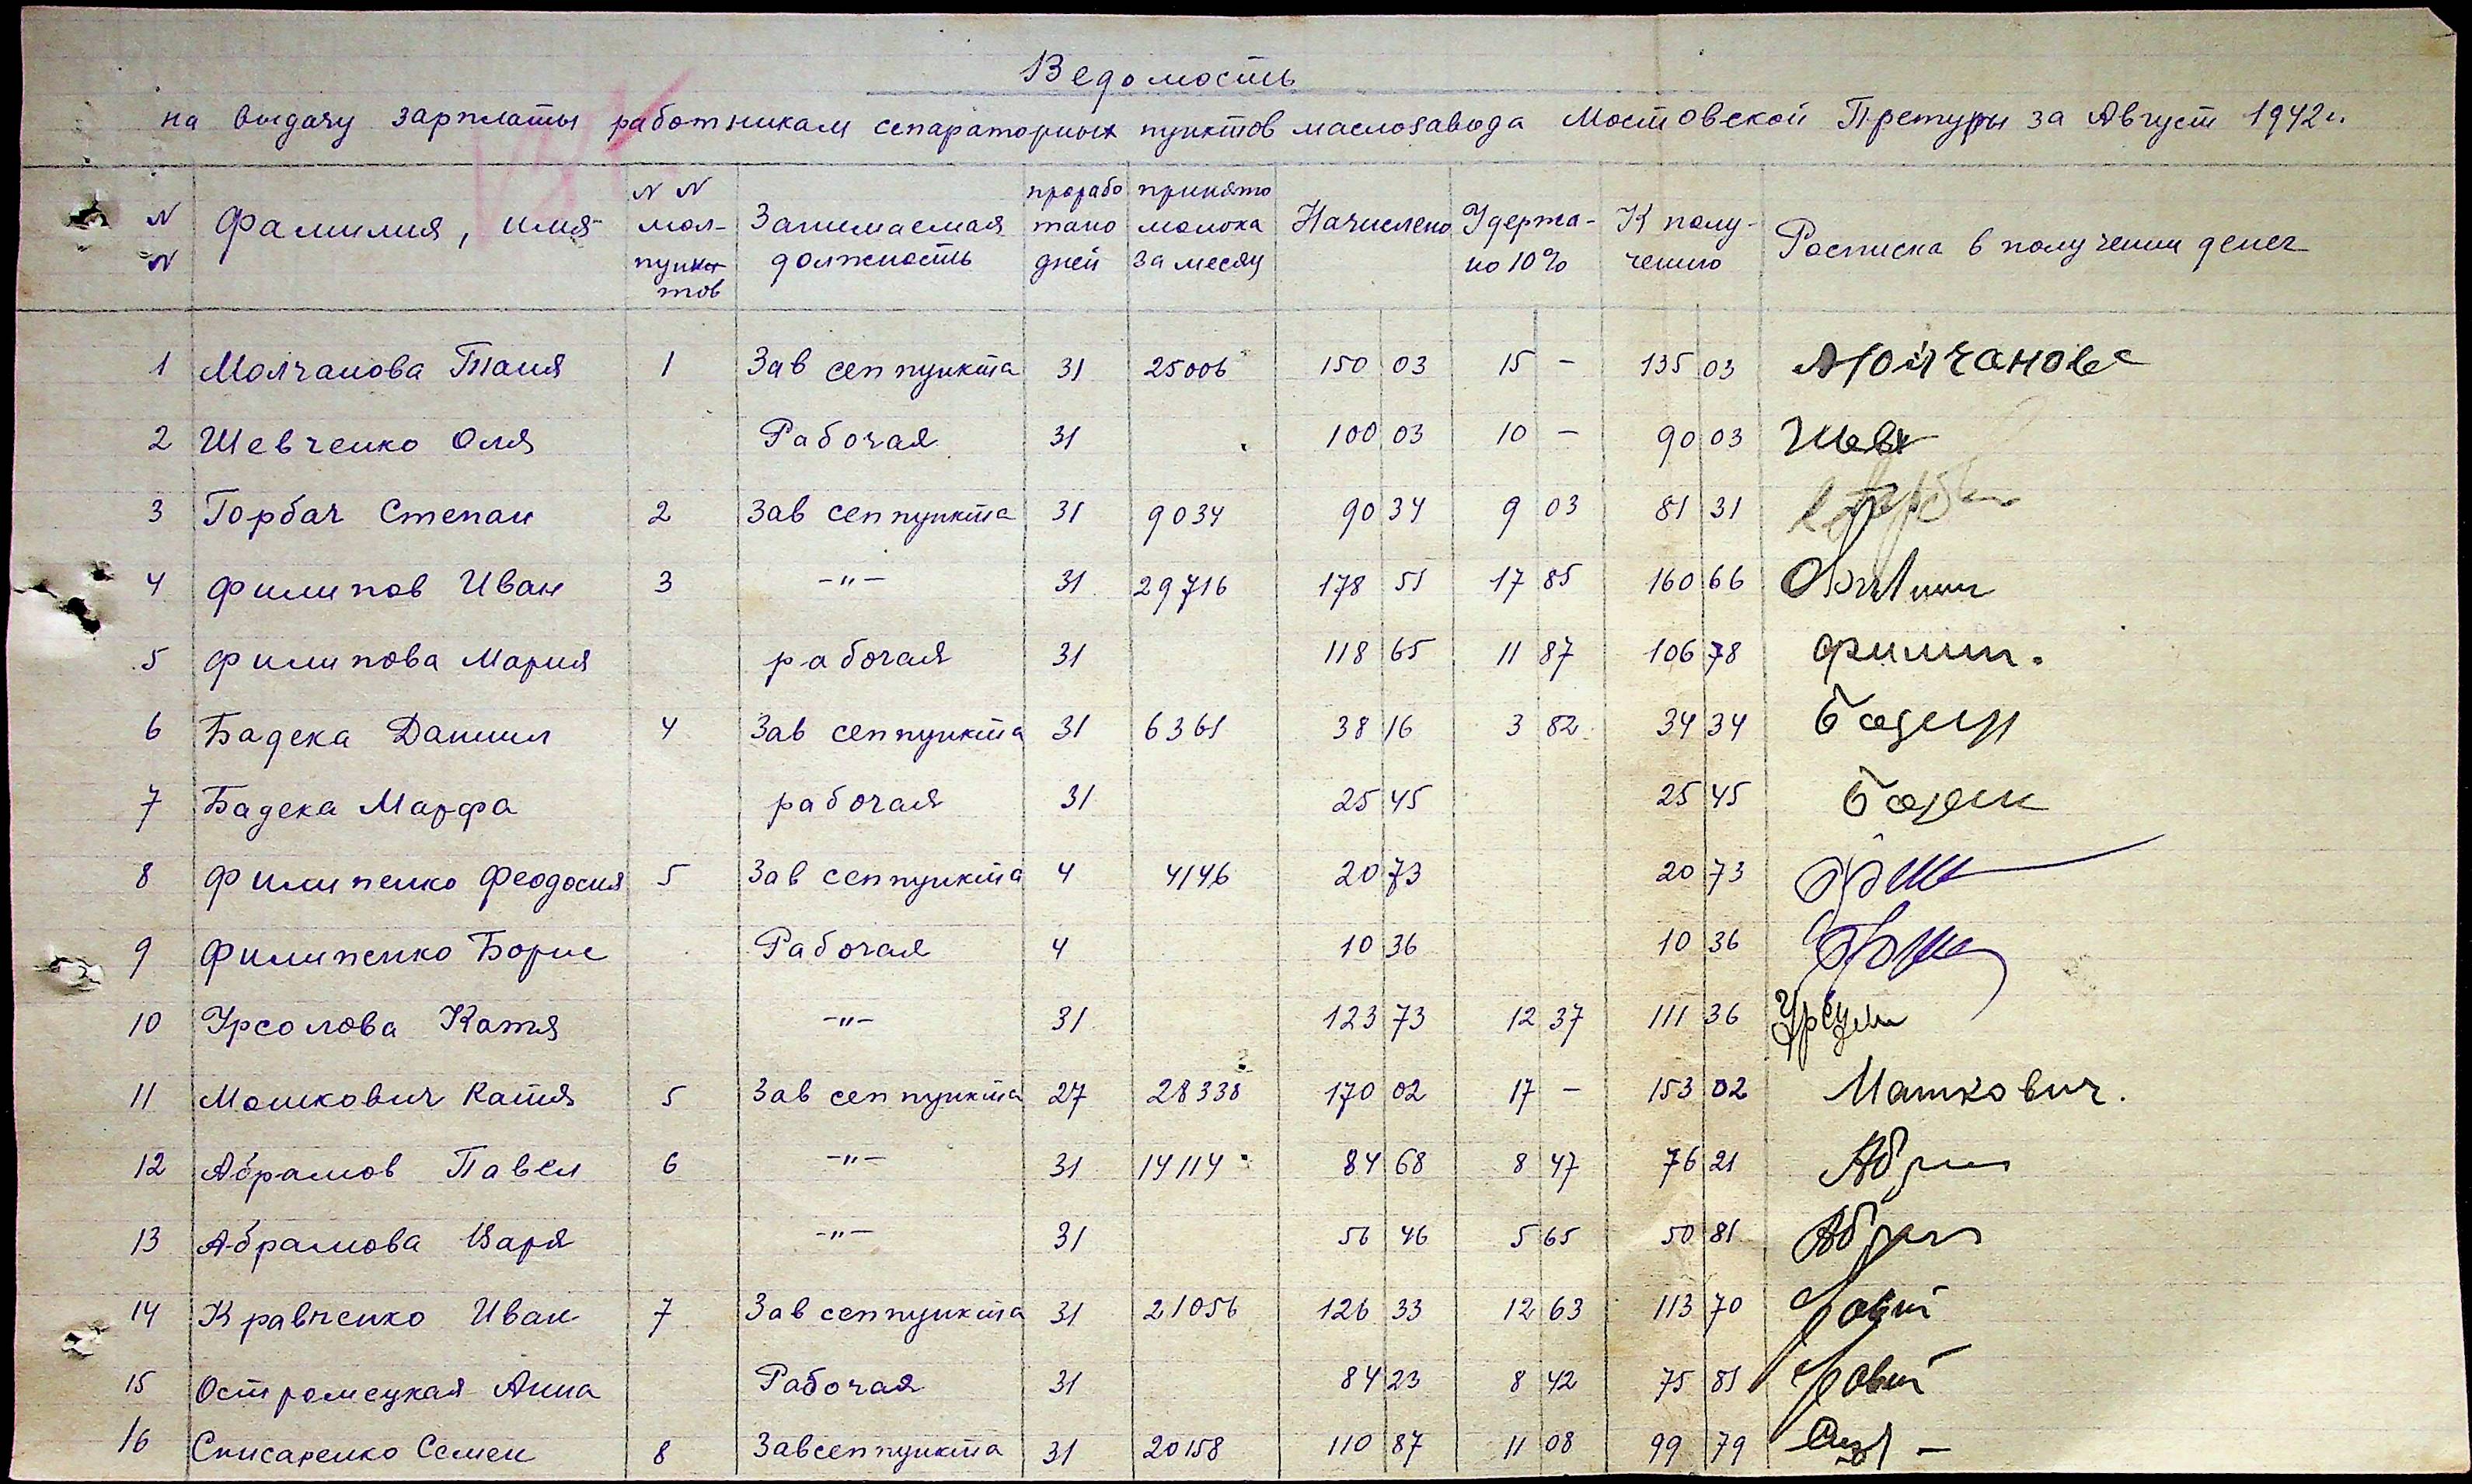 Ведомость
на выдачу зарплаты работникам сепараторных пунктов маслозавода Мостовской Претуры за Август 1942 г.
N N Фамилия, имя N N мол-пунктов Занимаемая должность прорабо тано дней принято молока за месяц Начислено Удержа-но 10% К полу-чению Расписка в получении денег
1 Молчанова Таня 1 Зав сеппункта 31 25006 150 03 15 – 135 03 Молчанова
2 Шевченко Оля Рабочая 31 100 03 10 – 90 03 Шев
3 Горбач Степан 2 Зав сеппункта 31 9034 90 34 9 03 81 31
4 Филипов Иван 3 –"– 31 29716 178 51 17 85 160 66
5 Филипова Мария рабочая 31 118 65 11 87 106 78 Филип.
6 Бадека Даниил 4 Зав сеппункта 31 6361 38 16 3 82 34 34
7 Бадека Марфа рабочая 31 25 45 25 45
8 Филипенко Феодосия 5 Зав сеппункта 4 4146 20 73 20 73
9 Филипенко Борис Рабочая 4 10 36 10 36
10 Урсолова Катя –"– 31 123 73 12 37 111 36
11 Мошкович Катя 5 Зав сеппункта 27 28338 170 02 17 – 153 02 Машкович.
12 Абрамов Павел 6 –"– 31 14114 84 68 8 47 76 21
13 Абрамова Варя –"– 31 56 46 5 65 50 81
14 Кравченко Иван 7 Зав сеппункта 31 21056 126 33 12 63 113 70
15 Остромецкая Анна Рабочая 31 84 23 8 42 75 81
16 Списаренко Семен 8 Зав сеппункта 31 20158 110 87 11 08 99 79